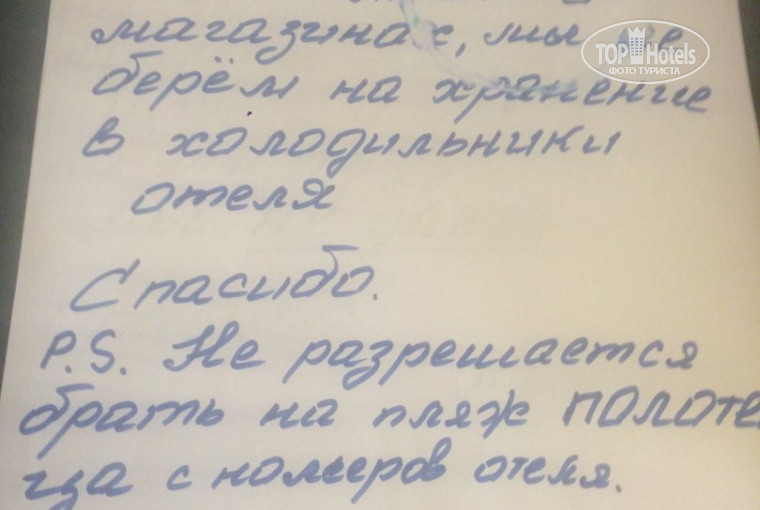 магазинах, мы не
TOP Hotels
ФОТО ТУРИСТА
берём на хранение
в холодильники
отеля
Спасибо.
P.S. Не разрешается
брать на пляж ПОЛОТЕ
нца с номеров отеля.